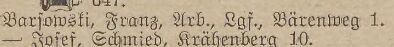 647.
Barjowski, Franz, Arb., Lgf., Bärenweg 1.
— Josef, Schmied, Krähenberg 10.